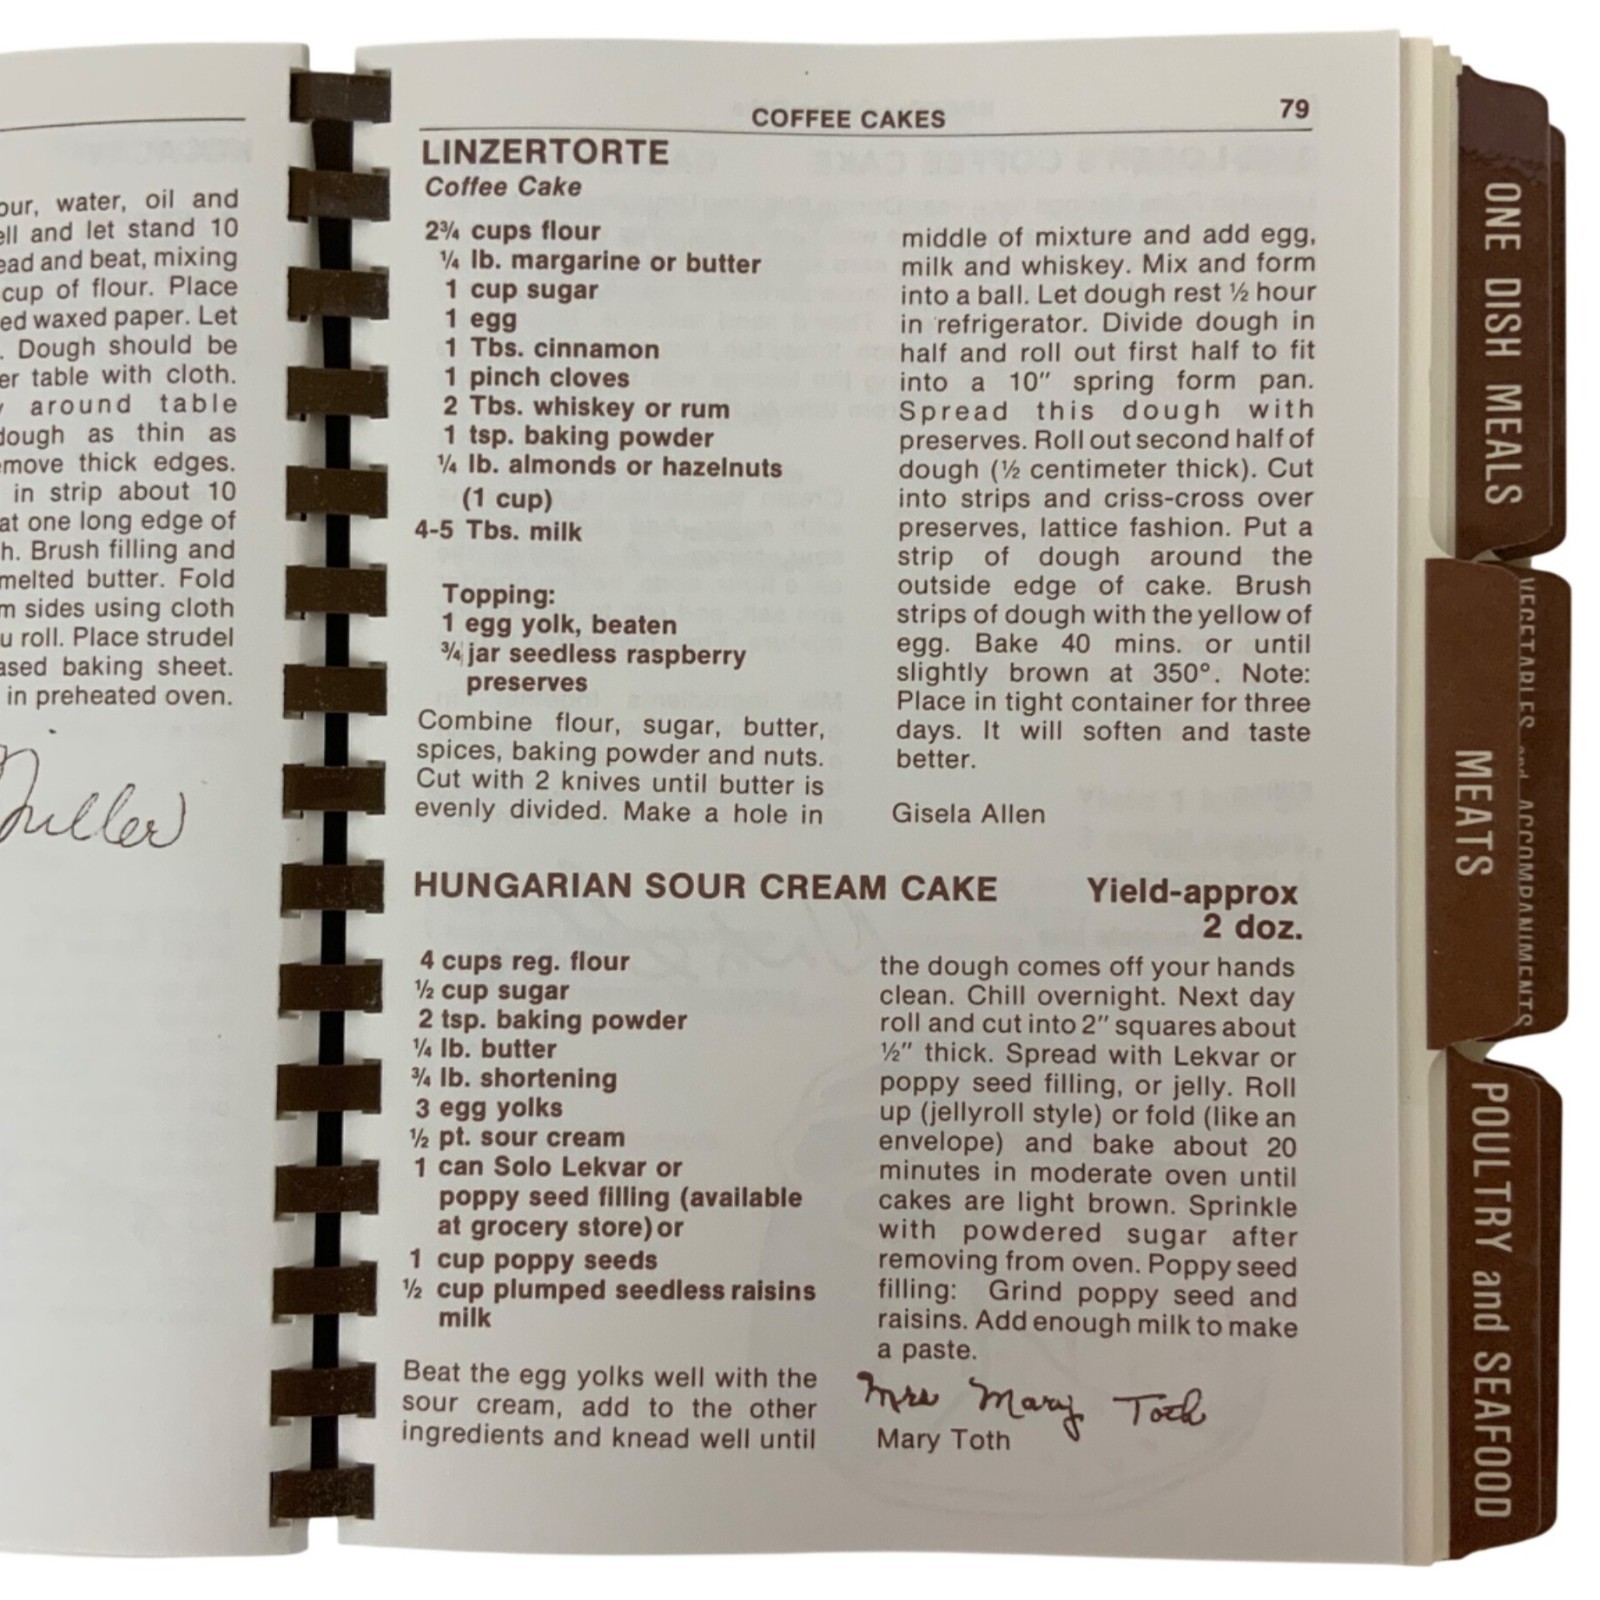 our, water, oil and
ell and let stand 10
ead and beat, mixing
cup of flour. Place
ed waxed paper. Let
. Dough should be
er table with cloth.
around table
dough as thin as
move thick edges.
in strip about 10
at one long edge of
h. Brush filling and
melted butter. Fold
m sides using cloth
u roll. Place strudel
ased baking sheet.
in preheated oven.
Miller
COFFEE CAKES
79
LINZERTORTE
Coffee Cake
2¾ cups flour
¼ lb. margarine or butter
1 cup sugar
1 egg
1 Tbs. cinnamon
1 pinch cloves
2 Tbs. whiskey or rum
1 tsp. baking powder
¼ lb. almonds or hazelnuts
(1 cup)
4-5 Tbs. milk
Topping:
1 egg yolk, beaten
¾ jar seedless raspberry
preserves
Combine flour, sugar, butter,
spices, baking powder and nuts.
Cut with 2 knives until butter is
evenly divided. Make a hole in
middle of mixture and add egg,
milk and whiskey. Mix and form
into a ball. Let dough rest ½ hour
in refrigerator. Divide dough in
half and roll out first half to fit
into a 10" spring form pan.
Spread this dough with
preserves. Roll out second half of
dough (½ centimeter thick). Cut
into strips and criss-cross over
preserves, lattice fashion. Put a
strip of dough around the
outside edge of cake. Brush
strips of dough with the yellow of
egg. Bake 40 mins. or until
slightly brown at 350°. Note:
Place in tight container for three
days. It will soften and taste
better.
Gisela Allen
HUNGARIAN SOUR CREAM CAKE
Yield-approx
2 doz.
4 cups reg. flour
½ cup sugar
2 tsp. baking powder
¼ lb. butter
¾ lb. shortening
3 egg yolks
½ pt. sour cream
1 can Solo Lekvar or
poppy seed filling (available
at grocery store) or
1 cup poppy seeds
½ cup plumped seedless raisins
milk
Beat the egg yolks well with the
sour cream, add to the other
ingredients and knead well until
the dough comes off your hands
clean. Chill overnight. Next day
roll and cut into 2" squares about
½" thick. Spread with Lekvar or
poppy seed filling, or jelly. Roll
up (jellyroll style) or fold (like an
envelope) and bake about 20
minutes in moderate oven until
cakes are light brown. Sprinkle
with powdered sugar after
removing from oven. Poppy seed
filling: Grind poppy seed and
raisins. Add enough milk to make
a paste.
Mrs Mary Toth
Mary Toth
ONE DISH MEALS
VEGETABLES and ACCOMPANIMENTS
MEATS
POULTRY and SEAFOOD